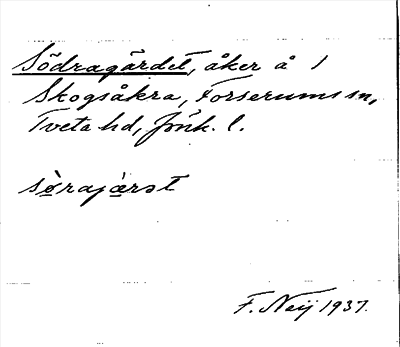 Södragärdet, åker å 1
Skogsåkra, Forserums sn,
Tveta hd, Jönk. l.
sö̀rajæ̀rət
F. Neij 1937.